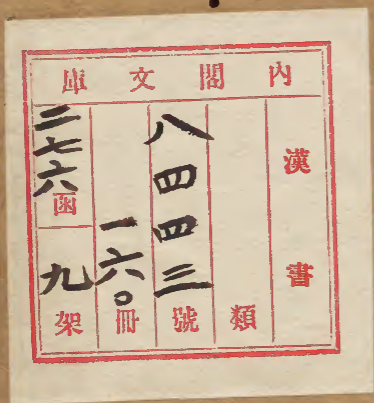 內閣文庫
漢書
類
八四四三號
一六〇冊
二七六函
九架